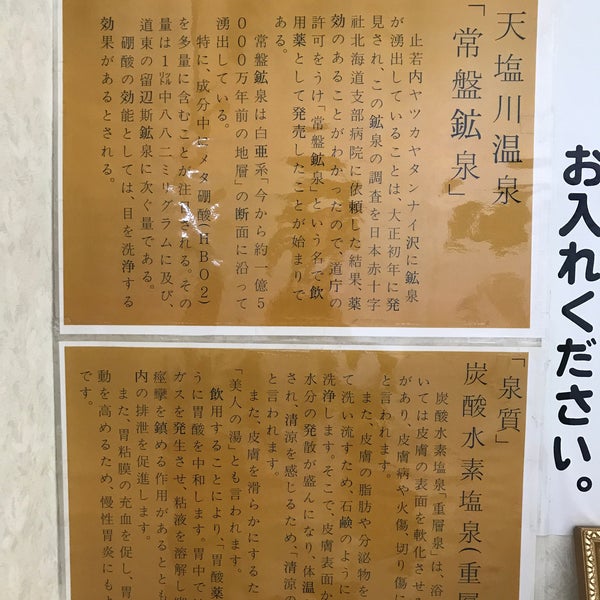 天塩川温泉
「常盤鉱泉」
止若内ヤツカヤタンナイ沢に鉱泉
が湧出していることは、大正初年に発
見され、この鉱泉の調査を日本赤十字
社北海道支部病院に依頼した結果、薬
効のあることがわかったので、道庁の
許可をうけ「常盤鉱泉」という名で飲
用薬として発売したことが始まりで
ある。
常盤鉱泉は白亜系「今から約一億5
000万年前の地層」の断面に沿って
湧出している。
特に、成分中にメタ硼酸(HBO2)
を多量に含むことが注目される。その
量は1㍑中八八二ミリグラムに及び、
道東の留辺斯鉱泉に次ぐ量である。
硼酸の効能としては、目を洗浄する
効果があるとされる。
お入れください。
「泉質」
炭酸水素塩泉(重層
炭酸水素塩泉「重層泉」は、浴
いては皮膚の表面を軟化させる
があり、皮膚病や火傷、切り傷に
と言われます。
また、皮膚の脂肪や分泌物を
て洗い流すため、石鹸のように
洗浄します。そこで、皮膚表面か
水分の発散が盛んになり、体温
され清涼を感じるため、「清涼の
と言われます。
また、皮膚を滑らかにするた
「美人の湯」とも言われます。
飲用することにより、「胃酸薬
うに胃酸を中和します。胃中で
ガスを発生させ、粘液を溶解し
痙攣を鎮める作用があるととも
内の排泄を促進します。
また、胃粘膜の充血を促し、胃
動を高めるため、慢性胃炎にもよ
です。